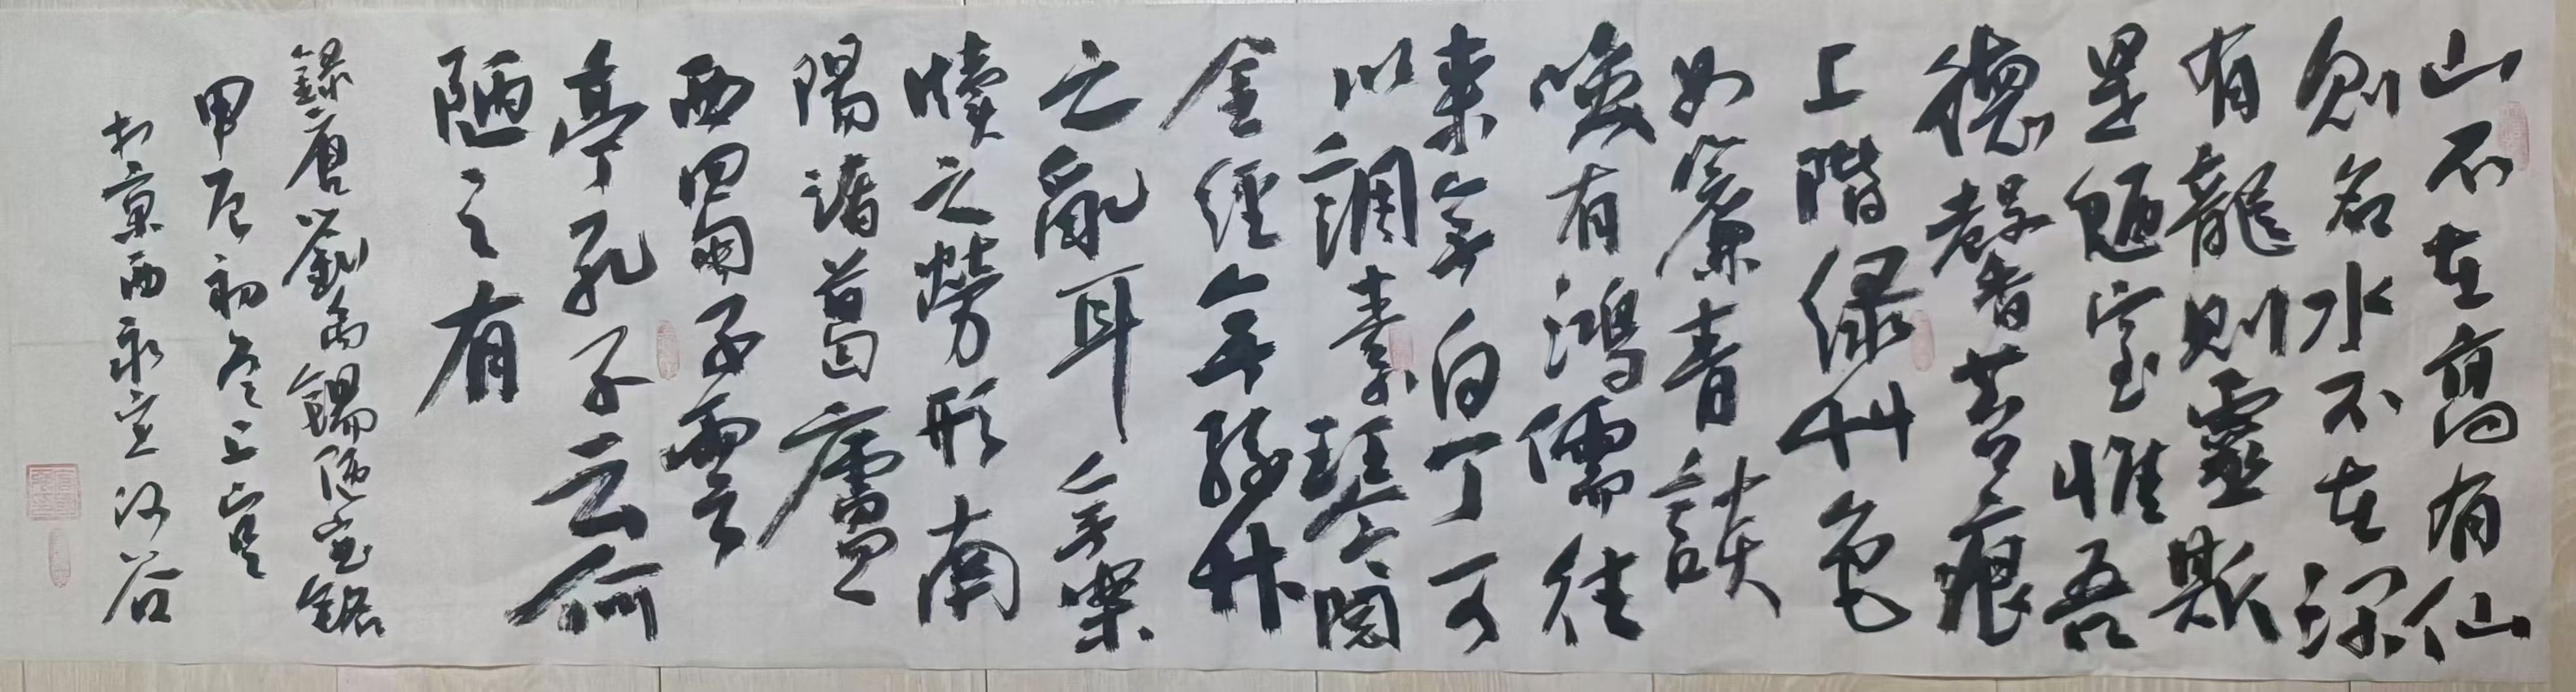 山不在高有仙
則名水不在深
有龍則靈斯
是陋室惟吾
德馨苔痕
上階綠艸色
如簾青談
咲有鴻儒往
來無白丁可
以調素琴閱
金經無絲竹
之亂耳無案
牘之勞形南
陽諸葛廬
西蜀子雲
亭孔子云何
陋之有
錄唐劉禹錫陋室銘
甲辰初冬上
於京西永定河谷